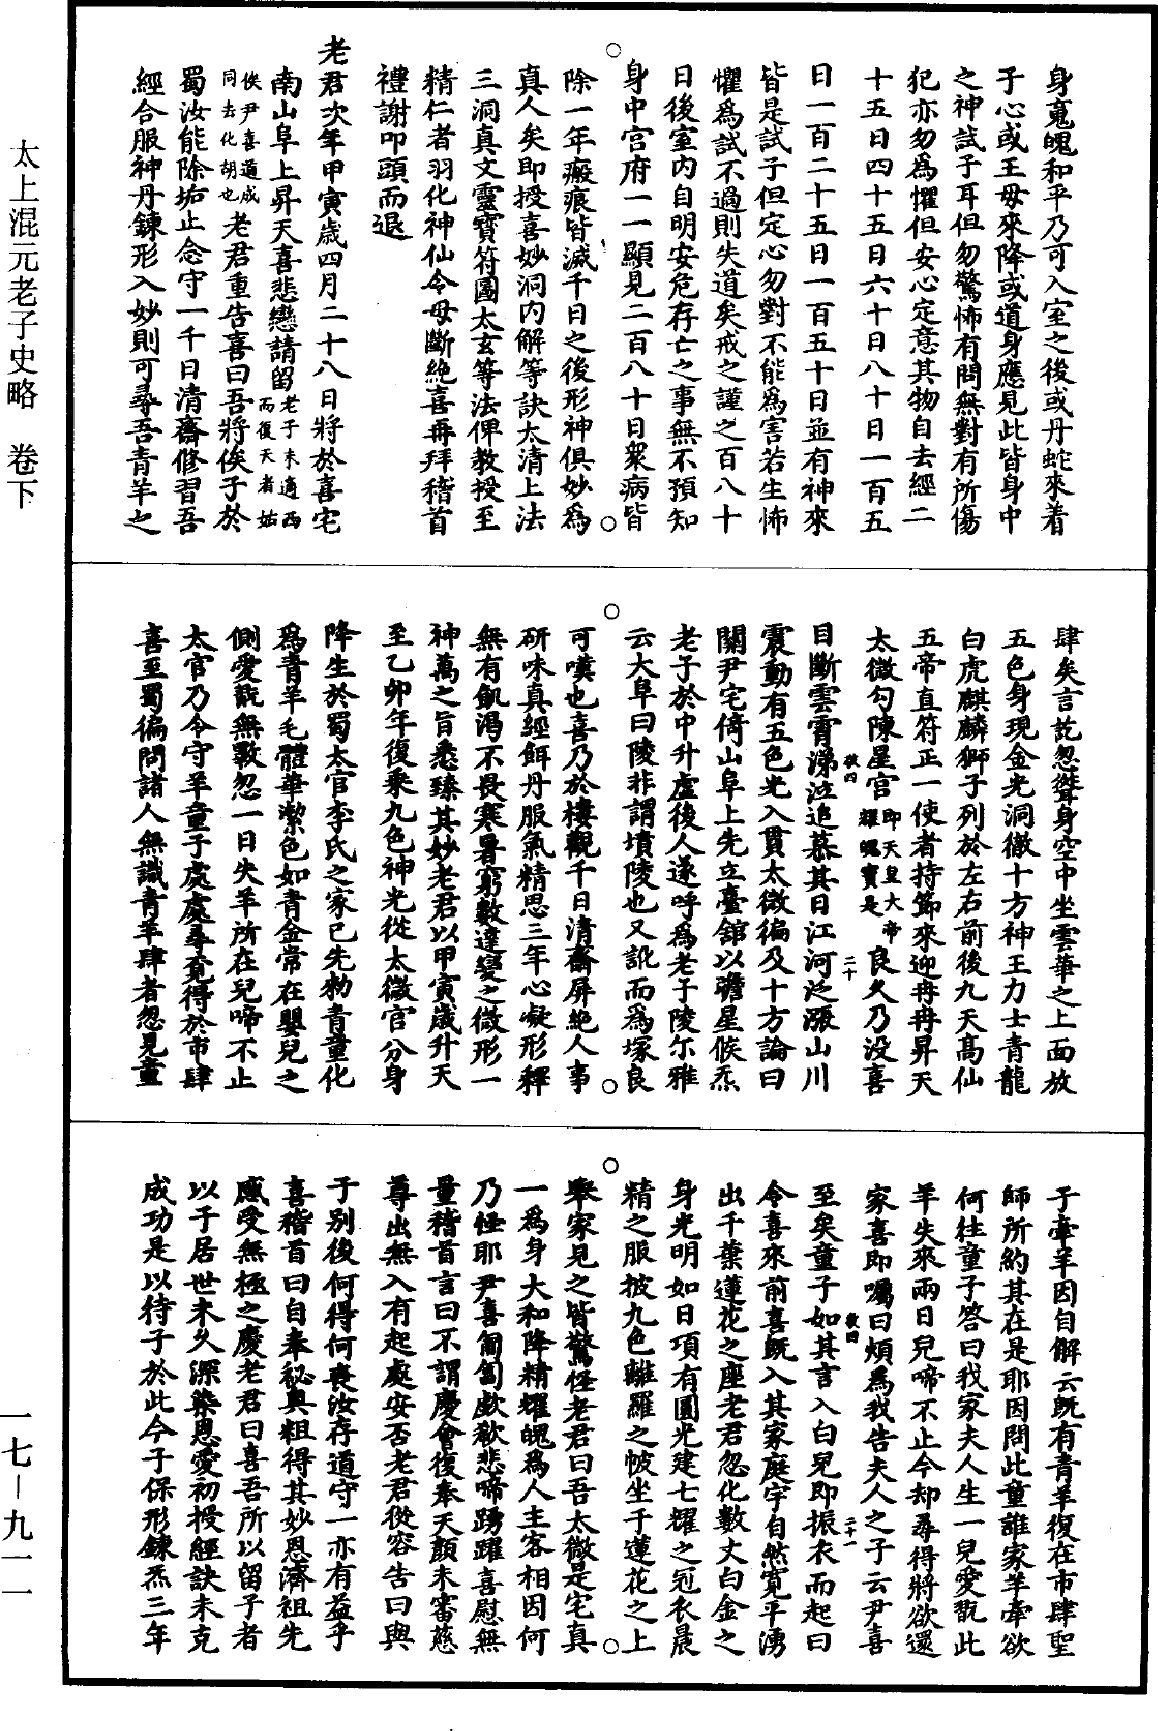 太上混元老子史略　卷下
身䰟魄和平乃可入室之後或丹蛇來着
子心或王母來降或道身應見此皆身中
之神試子耳但勿驚怖有問無對有所傷
犯亦勿為懼但安心定意其物自去經二
十五日四十五日六十日八十日一百五
日一百二十五日一百五十日並有神來
皆是試子但定心勿對不能為害若生怖
懼為試不過則失道矣戒之謹之百八十
日後室内自明安危存亡之事無不預知
身中宫府一一顯見二百八十日衆病皆
除一年瘢痕皆滅千日之後形神俱妙為
真人矣即授喜妙洞内解等訣太清上法
三洞真文靈寶符圖太玄等法俾教授至
精仁者羽化神仙令母斷絶喜再拜稽首
禮謝叩頭而退
老君次年甲寅歲四月二十八日將於喜宅
南山阜上昇天喜悲戀請留老子未適西而復天者姑
俟尹喜道成同去化胡也老君重告喜曰吾將俟子於
蜀汝能除垢止念守一千日清齋修習吾
經合服神丹鍊形入妙則可尋吾青羊之
肆矣言訖忽聳身空中坐雲華之上面放
五色身現金光洞徹十方神王力士青龍
白虎麒麟獅子列於左右前後九天高仙
五帝直符正一使者持節來迎冉冉昇天
太微勾陳星宫即天皇大帝耀魄寳是良久乃没喜
目斷雲霄涕泣追慕其日江河泛漲山川
震動有五色光入貫太微徧及十方論曰
關尹宅倚山阜上先立臺舘以瞻星候炁
老子於中升虚後人遂呼為老子陵尔雅
云大阜曰陵非謂墳陵也又訛而為塚良
可嘆也喜乃於樓觀千日清齋屏絶人事
研味真經餌丹服氣精思三年心凝形釋
無有飢渴不畏寒暑窮數達變之微形一
神萬之旨悉臻其妙老君以甲寅歲升天
至乙卯年復乘九色神光從太微宫分身
降生於蜀太官李氏之家已先勑青童化
為青羊毛體華潔色如青金常在嬰兒之
側愛翫無斁忽一日失羊所在兒啼不止
太官乃令守羊童子處處尋覔得於市肆
喜至蜀徧問諸人無識青羊肆者忽見童
子牽羊因自解云旣有青羊復在市肆聖
師所約其在是耶因問此童誰家羊牽欲
何往童子答曰我家夫人生一兒愛翫此
羊失來兩日兒啼不止今却尋得將欲還
家喜即囑曰煩為我告夫人之子云尹喜
至矣童子如其言入白兒即振衣而起曰
令喜來前喜旣入其家庭宇自然寛平湧
出千葉蓮花之座老君忽化數丈白金之
身光明如日項有圓光建七耀之冠衣晨
精之服披九色離羅之帔坐于蓮花之上
舉家見之皆驚怪老君曰吾太微是宅真
一為身大和降精耀魄為人主客相因何
乃怪耶尹喜匍匐歔欷悲啼踴躍喜慰無
量稽首言曰不謂慶會復奉天顔未審慈
尊出無入有起處安否老君從容告曰與
子别後何得何喪汝存道守一亦有益乎
喜稽首曰自奉秘奥粗得其妙恩濟祖先
感受無極之慶老君曰喜吾所以留子者
以子居世未久深染恩愛初授經訣未克
成功是以待子於此今子保形鍊炁三年
二十
二十一
一七－九一一